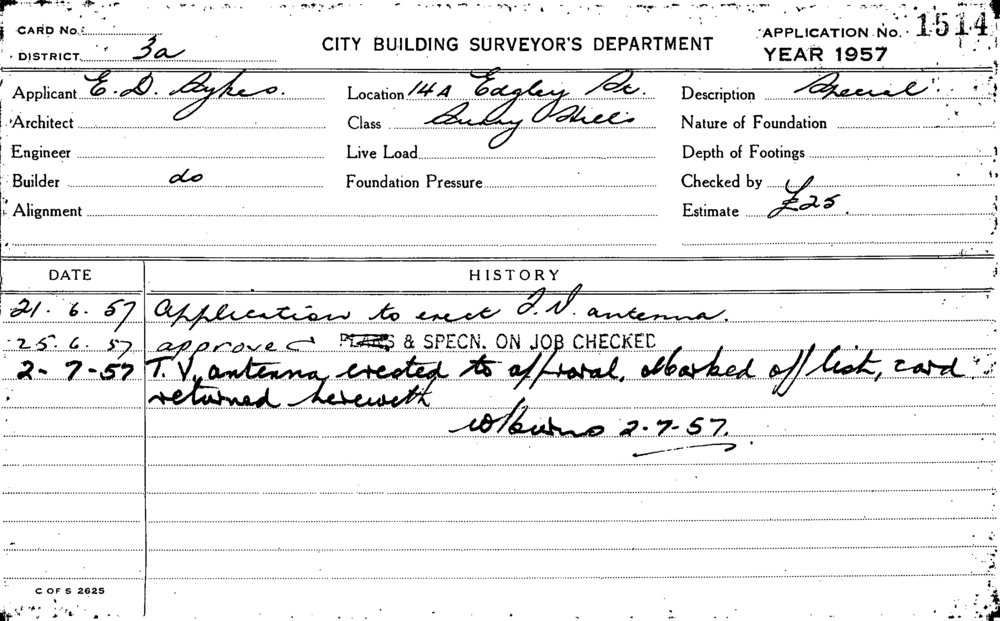 CARD No.
DISTRICT 3a
CITY BUILDING SURVEYOR'S DEPARTMENT
APPLICATION No. 1514
YEAR 1957
Applicant E. D. Sykes.
Location 14A Eagley
Description Special
Architect
Class Hills
Nature of Foundation
Engineer
Live Load
Depth of Footings
Builder do
Foundation Pressure
Checked by
Alignment
Estimate £25.
DATE HISTORY
21. 6. 57 Application to erect T.V. antenna.
25. 6. 57 approved PLANS & SPECN. ON JOB CHECKED
2-7-57 T.V. antenna erected to approval. Marked off list, card
returned herewith
2-7-57.
C OF S 2625